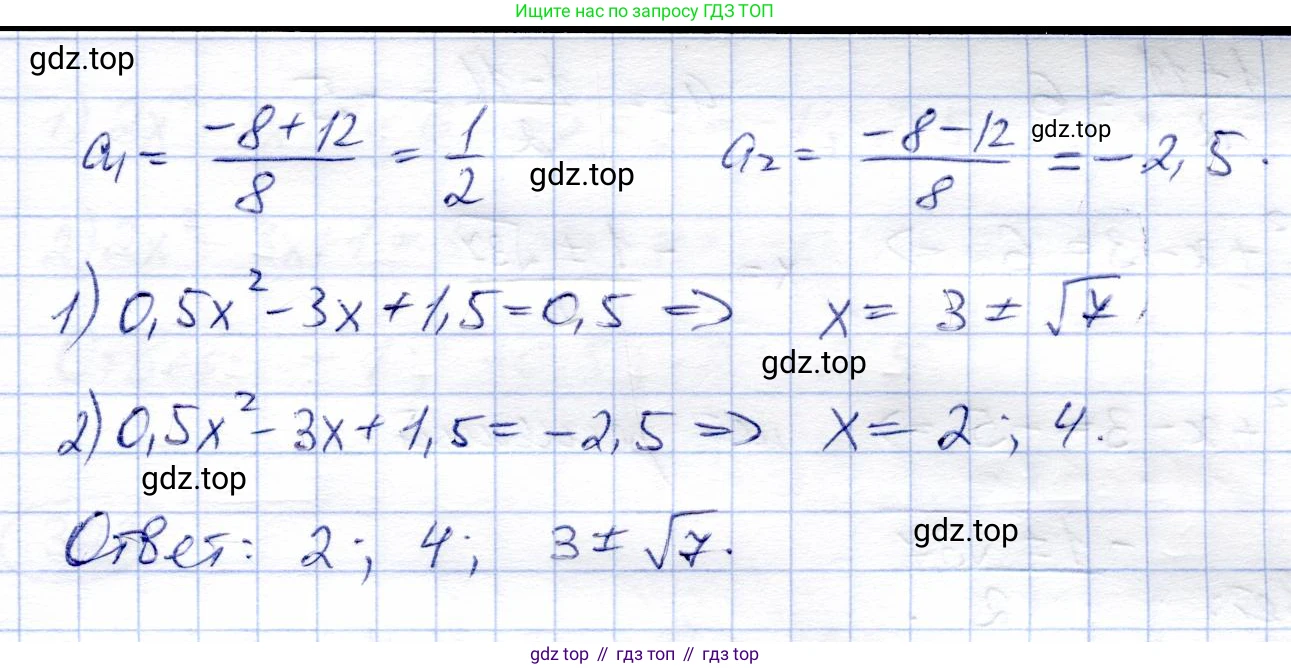 Ищите нас по запросу ГДЗ ТОП
gdz.top
a₁ = (-8+12)/8 = 1/2 gdz.top a₂ = (-8-12)/8 = -2,5. gdz.top
1) 0,5x² - 3x + 1,5 = 0,5 => x = 3 ± √7
gdz.top
2) 0,5x² - 3x + 1,5 = -2,5 => x = 2; 4.
gdz.top
Ответ: 2; 4; 3 ± √7.
gdz.top
gdz top // гдз топ // гдз top